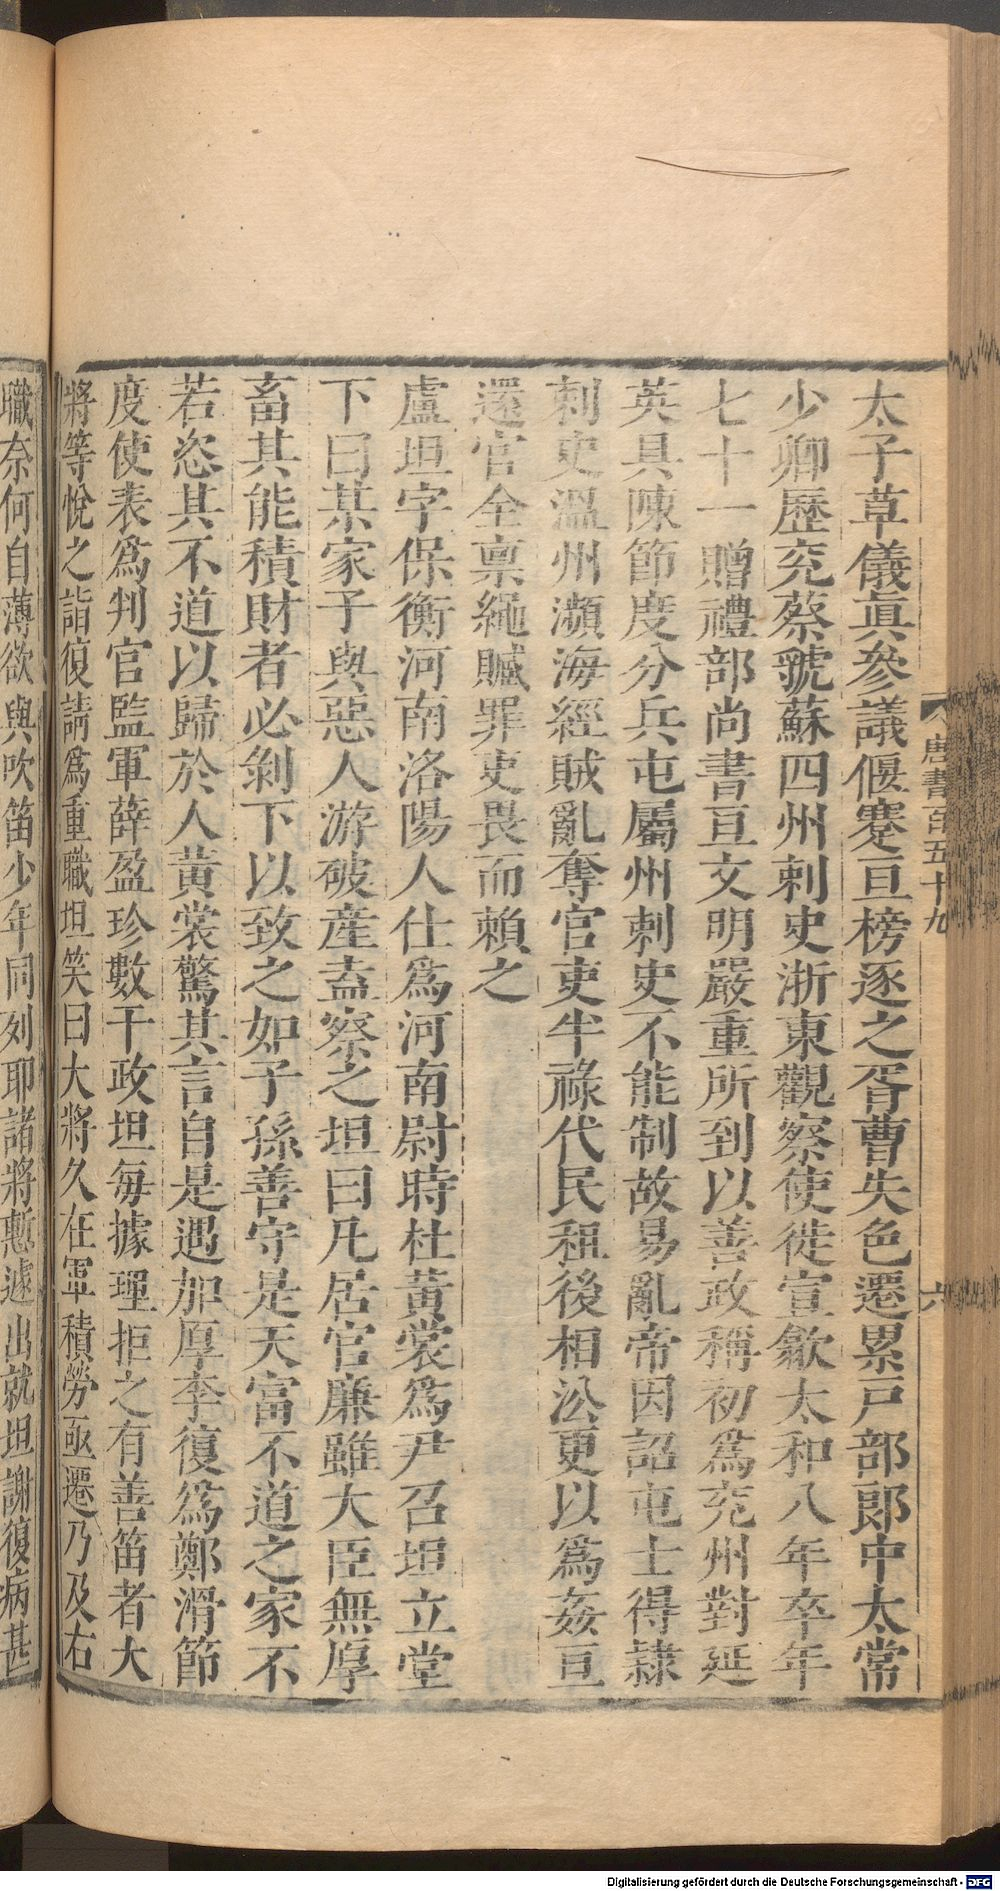 唐書百五十九
六
太子草儀眞參議偃蹇亘榜逐之胥曹失色遷累戸部郞中太常
少卿歷兖蔡虢蘇四州刺史浙東觀察使徙宣歙太和八年卒年
七十一贈禮部尚書亘文明嚴重所到以善政稱初爲兖州對延
英具陳節度分兵屯屬州刺史不能制故易亂帝因詔屯士得隸
刺史溫州瀕海經賊亂奪官吏半祿代民租後相㳂更以爲姦亘
還官全稟繩贓罪吏畏而賴之
盧坦字保衡河南洛陽人仕爲河南尉時杜黃裳爲尹召坦立堂
下曰某家子與惡人游破產盍察之坦曰凡居官廉雖大臣無厚
畜其能積財者必剝下以致之如子孫善守是天富不道之家不
若恣其不道以歸於人黃裳驚其言自是遇加厚李復爲鄭滑節
度使表爲判官監軍薛盈珍數干政坦毎據理拒之有善笛者大
將等悅之詣復請爲重職坦笑曰大將久在軍積勞亟遷乃及右
職奈何自薄欲與吹笛少年同列耶諸將慙遽出就坦謝復病甚
Digitalisierung gefördert durch die Deutsche Forschungsgemeinschaft - DFG